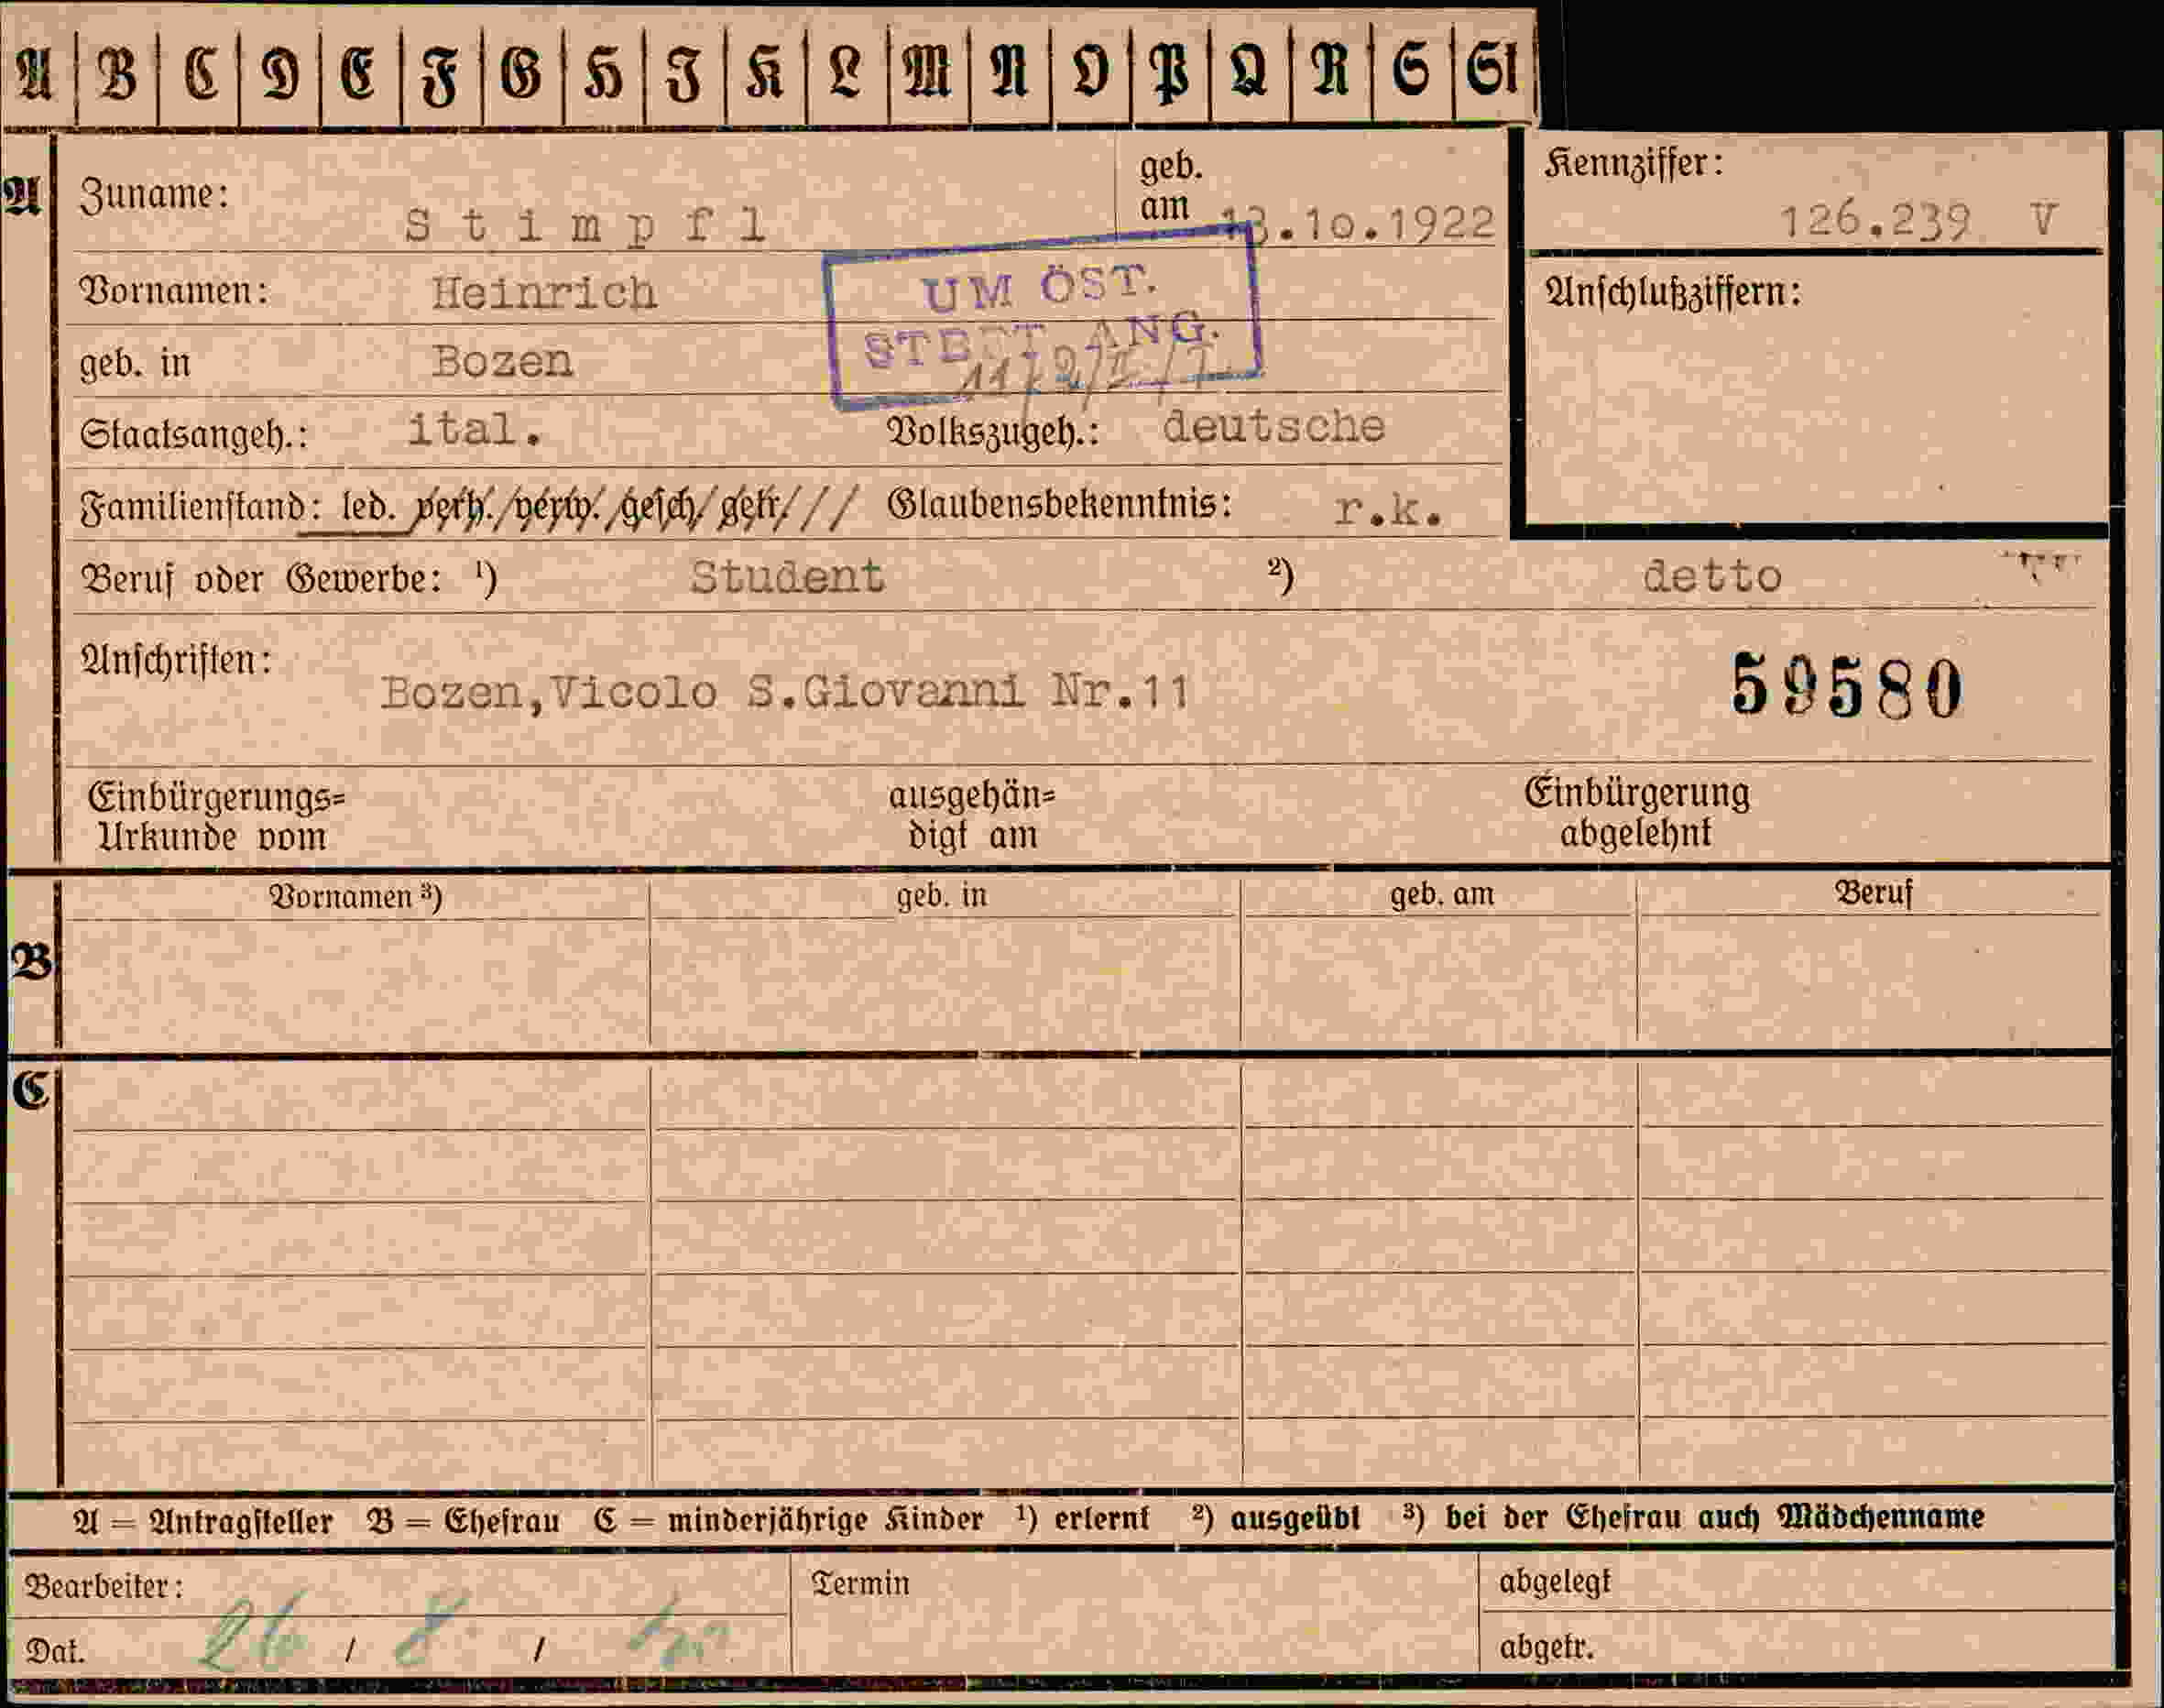 A B C D E F G H I K L M N O P Q R S St
A Zuname: Stimpfl geb. am 13.10.1922 Kennziffer: 126.239 V
Vornamen: Heinrich Anschlußziffern:
UM ÖST.
geb. in Bozen
ANG.
Staatsangeh.: ital. Volkszugeh.: deutsche
Familienstand: led. verh./verw./gesch/getr/// Glaubensbekenntnis: r.k.
Beruf oder Gewerbe: ¹) Student ²) detto
Anschriften: Bozen,Vicolo S.Giovanni Nr.11 59580
Einbürgerungs= ausgehän= Einbürgerung
Urkunde vom digt am abgelehnt
Vornamen ³) geb. in geb. am Beruf
B
C
A = Antragsteller B = Ehefrau C = minderjährige Kinder ¹) erlernt ²) ausgeübt ³) bei der Ehefrau auch Mädchenname
Bearbeiter: Termin abgelegt
Dat. 26 / 8 / abgetr.